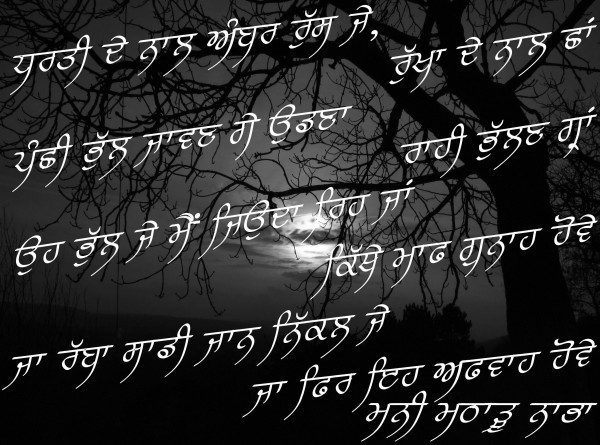 ਧਰਤੀ ਦੇ ਨਾਲ ਅੰਬਰ ਰੁੱਸ ਜੇ,
ਰੁੱਖਾ ਦੇ ਨਾਲ ਛਾਂ
ਪੰਛੀ ਭੁੱਲ ਜਾਵਣ ਜੇ ਉਡਣਾ
ਰਾਹੀ ਭੁੱਲਣ ਗ੍ਰਾਂ
ਉਹ ਭੁੱਲ ਜੇ ਮੈਂ ਜਿਉਂਦਾ ਰਿਹ ਜਾਂ
ਕਿੱਥੇ ਮਾਫ ਗੁਨਾਹ ਹੋਵੇ
ਜਾ ਰੱਬਾ ਸਾਡੀ ਜਾਨ ਨਿੱਕਲ ਜੇ
ਜਾ ਫਿਰ ਇਹ ਅਫਵਾਹ ਹੋਵੇ
ਮਨੀ ਮਠਾੜੂ ਨਾਭਾ